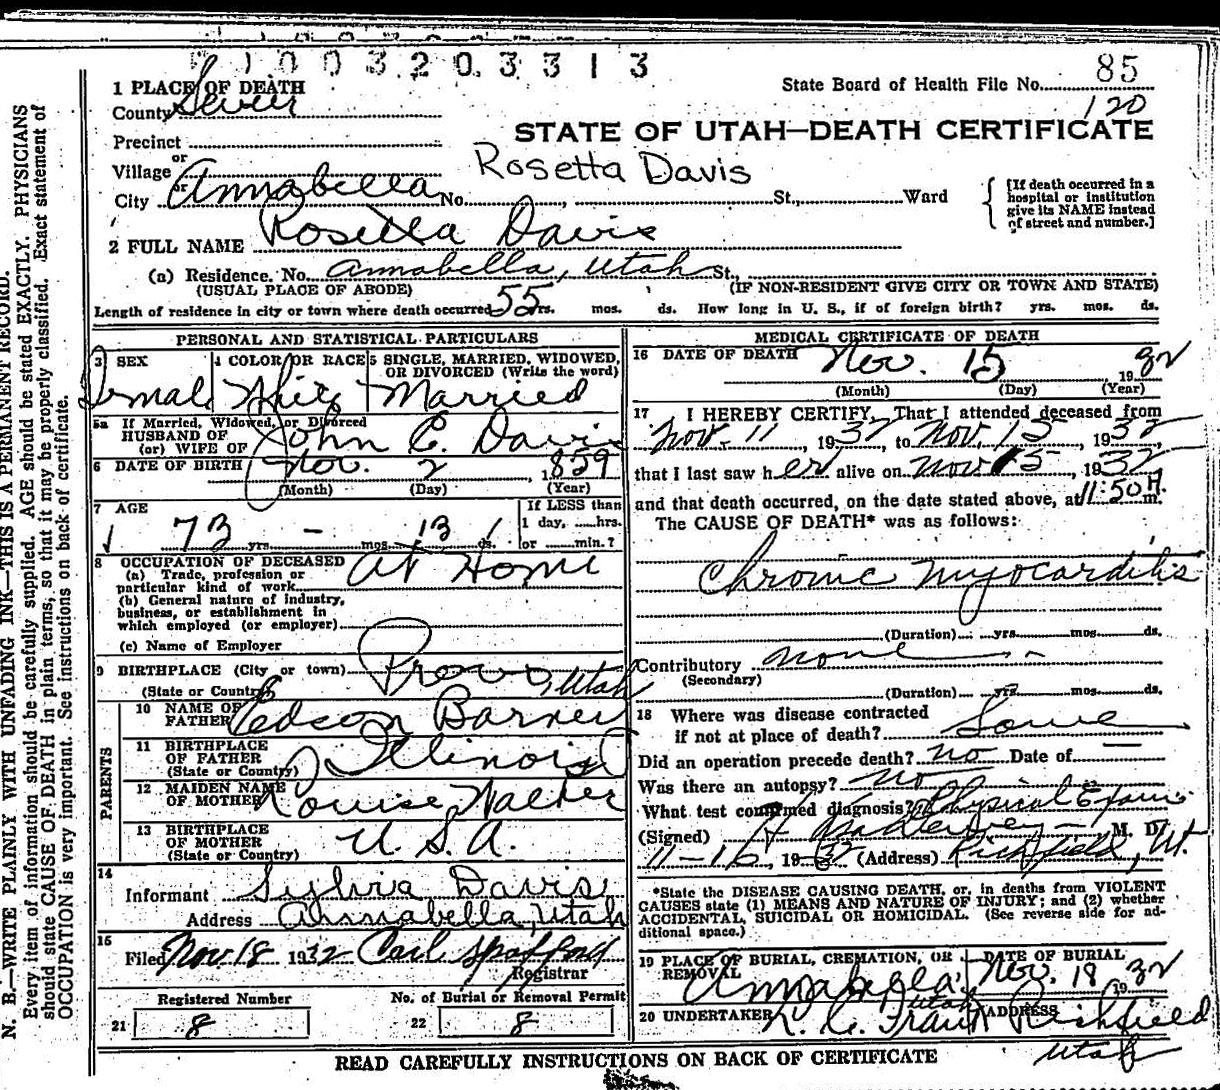 1 0 0 3 2 0 3 3 1 3
State Board of Health File No. 85
120
1 PLACE OF DEATH
County Sevier
STATE OF UTAH—DEATH CERTIFICATE
Precinct
or
Village
or
City Annabella No. , St., Ward
Rosetta Davis
[If death occurred in a hospital or institution give its NAME instead of street and number.]
2 FULL NAME Rosetta Davis
(a) Residence. No. Annabella, Utah St.,
(USUAL PLACE OF ABODE) (IF NON-RESIDENT GIVE CITY OR TOWN AND STATE)
Length of residence in city or town where death occurred 55 yrs. mos. ds. How long in U. S., if of foreign birth? yrs. mos. ds.
PERSONAL AND STATISTICAL PARTICULARS
3 SEX 4 COLOR OR RACE 5 SINGLE, MARRIED, WIDOWED, OR DIVORCED (Write the word)
Female White Married
5a If Married, Widowed, or Divorced
HUSBAND OF
(or) WIFE OF John E. Davis
6 DATE OF BIRTH Nov. 2, 1859
(Month) (Day) (Year)
7 AGE If LESS than
1 day, hrs.
73 yrs. - mos. 13 ds. or min.?
8 OCCUPATION OF DECEASED
(a) Trade, profession or
particular kind of work At Home
(b) General nature of industry,
business, or establishment in
which employed (or employer)
(c) Name of Employer
9 BIRTHPLACE (City or town) Provo, Utah
(State or Country)
PARENTS
10 NAME OF
FATHER Edson Barney
11 BIRTHPLACE
OF FATHER
(State or Country) Illinois
12 MAIDEN NAME
OF MOTHER Louise Walker
13 BIRTHPLACE
OF MOTHER
(State or Country) U. S. A.
14
Informant Sylvia Davis
Address Annabella, Utah
15
Filed Nov. 18 1932 Carl Spafford
Registrar
Registered Number No. of Burial or Removal Permit
21 8 22 8
MEDICAL CERTIFICATE OF DEATH
16 DATE OF DEATH Nov. 15 1932
(Month) (Day) (Year)
17 I HEREBY CERTIFY, That I attended deceased from
Nov. 11, 1932 to Nov. 15, 1932,
that I last saw her alive on Nov 15, 1932
and that death occurred, on the date stated above, at 11:50 m.
The CAUSE OF DEATH* was as follows:
Chronic Myocarditis
(Duration) yrs. mos. ds.
Contributory none
(Secondary)
(Duration) yrs. mos. ds.
18 Where was disease contracted
if not at place of death? Same
Did an operation precede death? no Date of —
Was there an autopsy? no
What test confirmed diagnosis? Physical Exam
(Signed) M. D.
11-16, 1932 (Address) Richfield, Ut.
*State the DISEASE CAUSING DEATH, or, in deaths from VIOLENT
CAUSES state (1) MEANS AND NATURE OF INJURY; and (2) whether
ACCIDENTAL, SUICIDAL OR HOMICIDAL. (See reverse side for ad-
ditional space.)
19 PLACE OF BURIAL, CREMATION, OR REMOVAL DATE OF BURIAL
Annabella, Utah Nov. 18 1932
20 UNDERTAKER ADDRESS
Richfield
Utah
READ CAREFULLY INSTRUCTIONS ON BACK OF CERTIFICATE
N. B.—WRITE PLAINLY WITH UNFADING INK—THIS IS A PERMANENT RECORD.
Every item of information should be carefully supplied. AGE should be stated EXACTLY. PHYSICIANS
should state CAUSE OF DEATH in plain terms, so that it may be properly classified. Exact statement of
OCCUPATION is very important. See instructions on back of certificate.